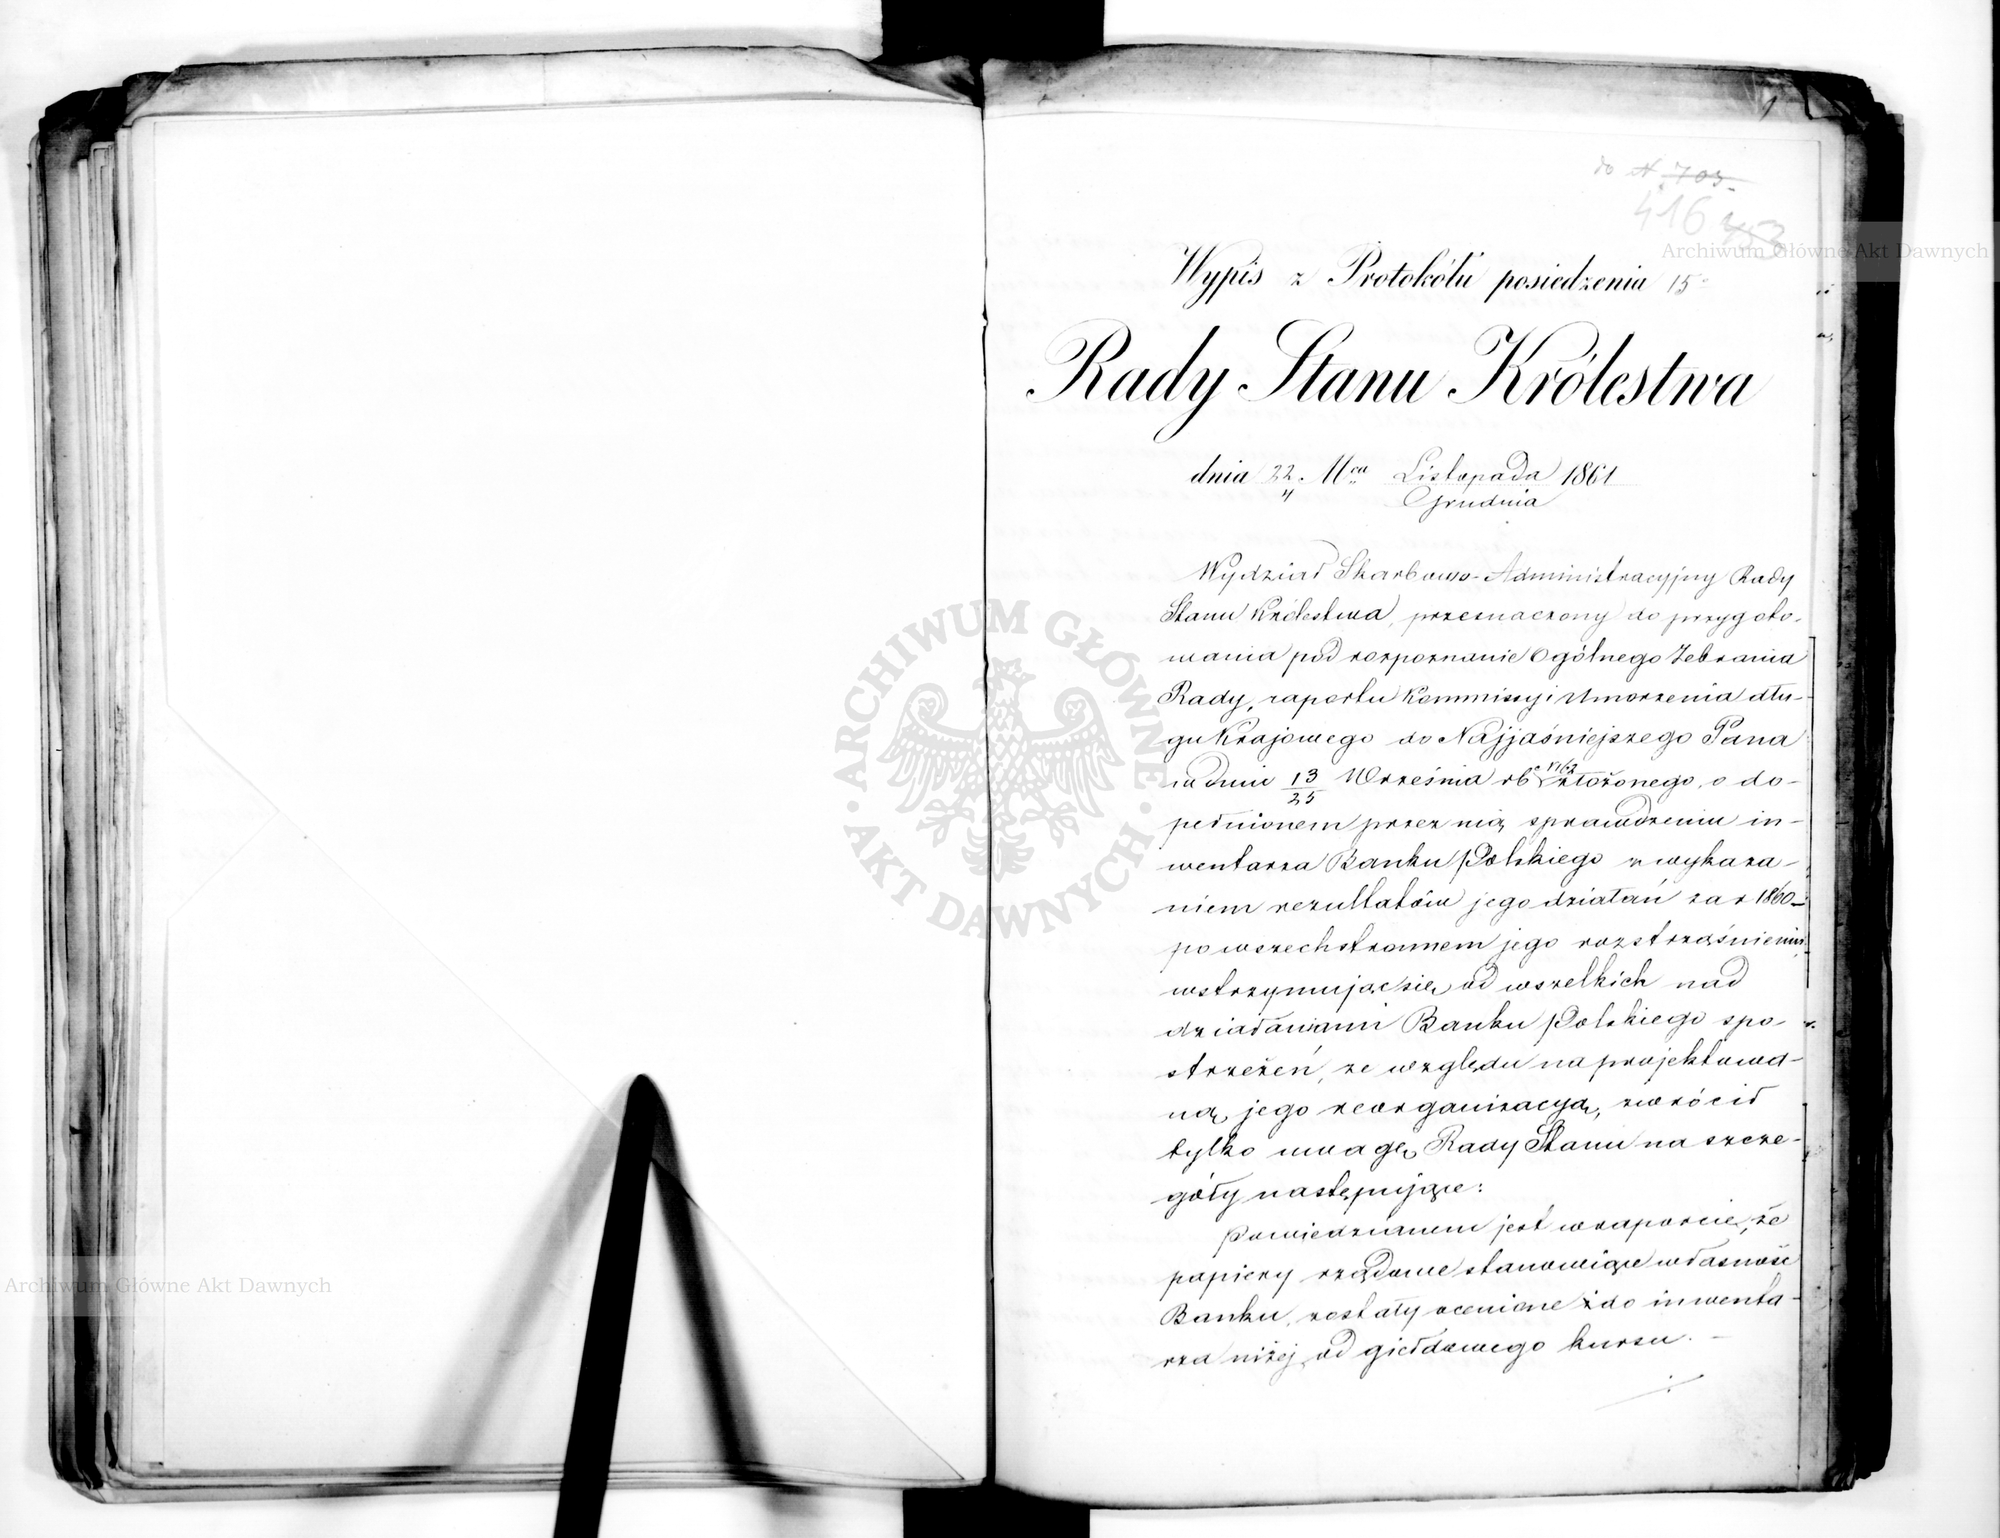 1
do N 703.
416 453
Wypis z Protokółu posiedzenia 15º
Rady Stanu Królestwa
dnia 22/4 Mca Listopada 1861
Grudnia
Wydział Skarbowo-Administracyjny Rady
Stanu Królestwa, przeznaczony do przygoto-
wania pod rozpoznanie Ogólnego Zebrania
Rady, raportu Kommissyi Umorzenia dłu-
gu Krajowego do Najjaśniejszego Pana
w dniu 13/25 Września rb złożonego, o do-
pełnionem przez nią sprawdzeniu in-
wentarza Banku Polskiego z wykaza-
niem rezultatów jego działań za r 1860 –
po wszechstronnem jego roztrząśnieniu,
wstrzymując się od wszelkich nad
działaniami Banku Polskiego spo-
strzeżeń, ze względu na projektowa-
ną jego reorganizacyą, zwrócił
tylko uwagę Rady Stanu na szcze-
góły następujące:
Powiedzianem jest w raporcie, że
papiery rządowe stanowiące własność
Banku, zostały ocenione do inwenta-
rza niżej od giełdowego kursu. –
ARCHIWUM GŁÓWNE AKT DAWNYCH
Archiwum Główne Akt Dawnych
Archiwum Główne Akt Dawnych